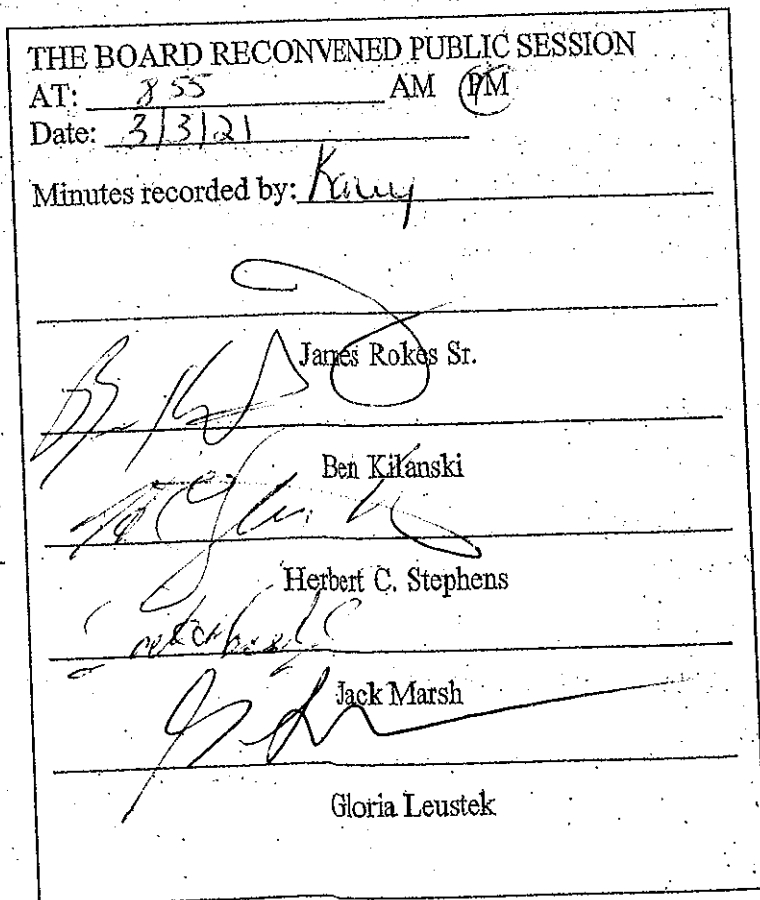 THE BOARD RECONVENED PUBLIC SESSION
AT: 8 55 AM PM
Date: 3/3/21
Minutes recorded by:
James Rokes Sr.
Ben Kilanski
Herbert C. Stephens
Jack Marsh
Gloria Leustek